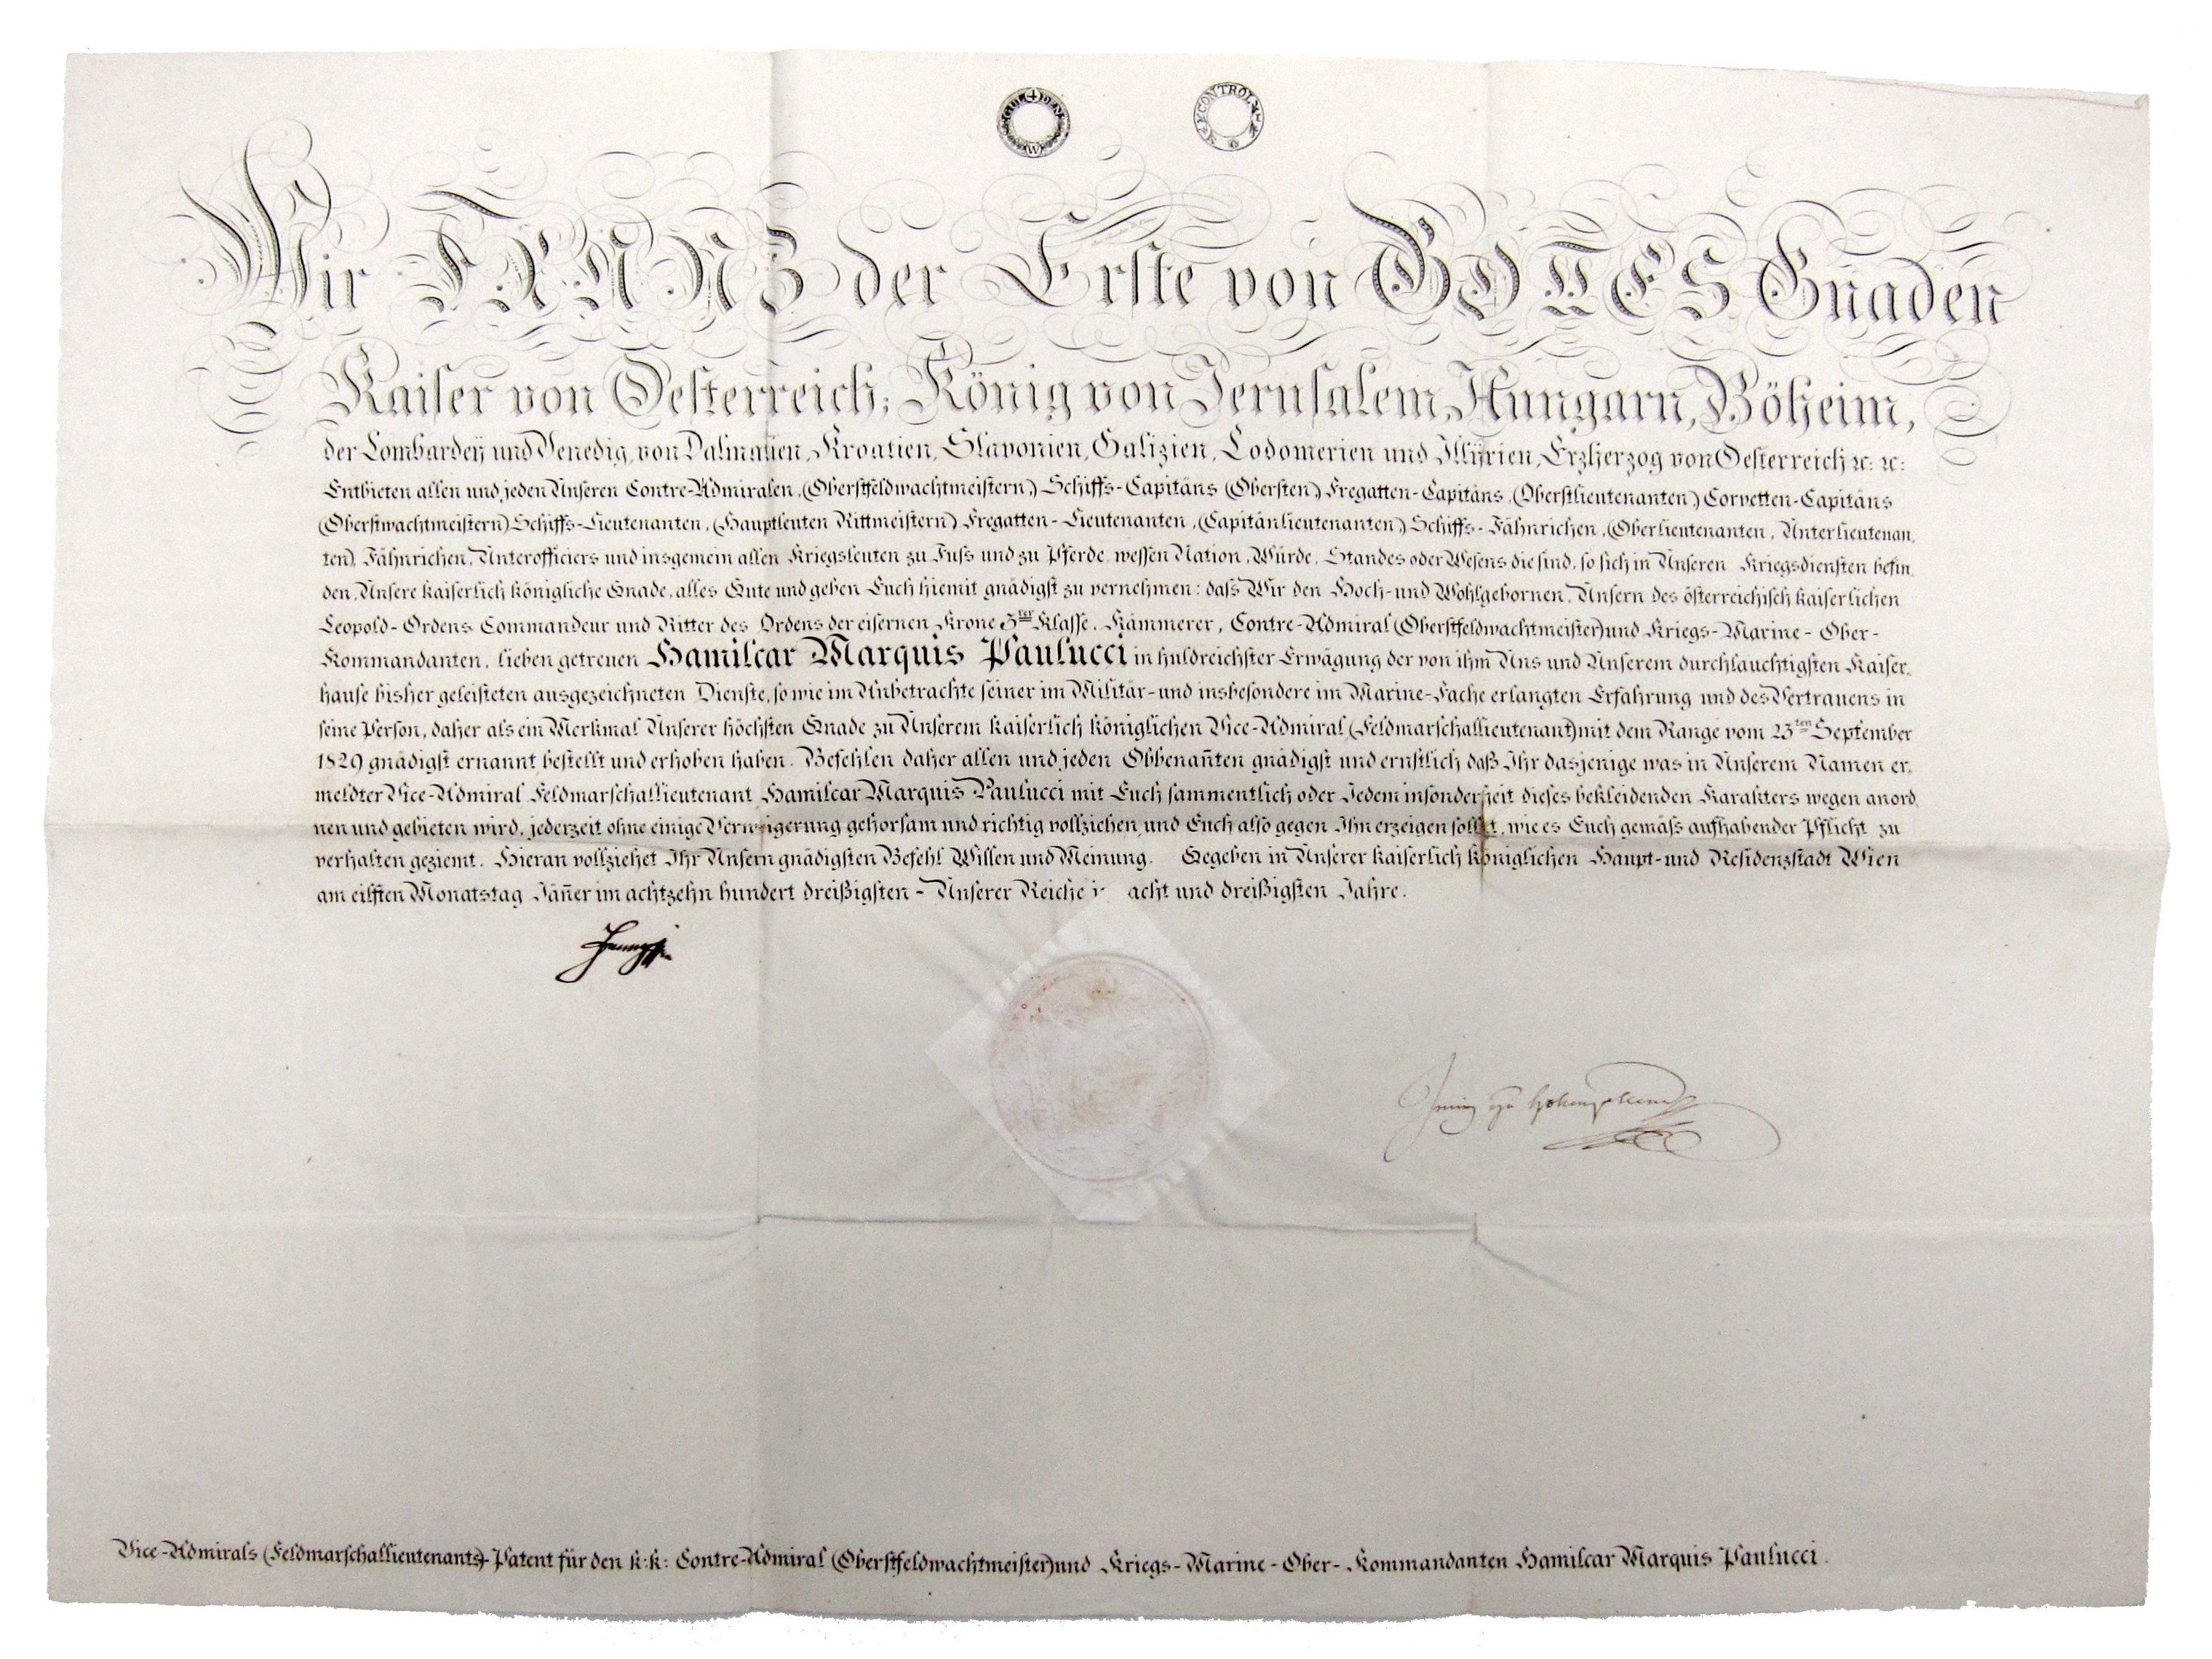 4 GULDEN W
CONTROL
Wir FRANZ der Erste von GOTTES Gnaden
Kaiser von Oesterreich; König von Jerusalem, Hungarn, Böheim,
der Lombardey und Venedig, von Dalmatien, Kroatien, Slavonien, Galizien, Lodomerien und Illyrien, Erzherzog von Oesterreich ꝛc: ꝛc:
Entbieten allen und jeden Unseren Contre-Admiralen, (Oberstfeldwachtmeistern,) Schiffs-Capitäns (Obersten) Fregatten-Capitäns, (Oberstlieutenanten,) Corvetten-Capitäns
(Oberstwachtmeistern) Schiffs-Lieutenanten, (Hauptleuten Rittmeistern) Fregatten-Lieutenanten, (Capitänlieutenanten) Schiffs-Fähnrichen, (Oberlieutenanten, Unterlieutenan,
ten), Fähnrichen, Unterofficiers und insgemein allen Kriegsleuten zu Fuss und zu Pferde, wessen Nation, Würde, Standes oder Wesens die sind, so sich in Unseren Kriegsdiensten befin,
den, Unsere kaiserlich königliche Gnade, alles Gute und geben Euch hiemit gnädigst zu vernehmen: dass Wir den Hoch- und Wohlgebornen, Unsern des österreichisch kaiserlichen
Leopold-Ordens Commandeur und Ritter des Ordens der eisernen Krone 3ter Klasse, Kämmerer, Contre-Admiral (Oberstfeldwachtmeister) und Kriegs-Marine-Ober-
Kommandanten, lieben getreuen Hamilcar Marquis Paulucci in huldreichster Erwägung der von ihm Uns und Unserem durchlauchtigsten Kaiser,
hause bisher geleisteten ausgezeichneten Dienste, so wie im Anbetrachte seiner im Militär- und insbesondere im Marine-Fache erlangten Erfahrung und des Vertrauens in
seine Person, daher als ein Merkmal Unserer höchsten Gnade zu Unserem kaiserlich königlichen Vice-Admiral (Feldmarschallieutenant) mit dem Range vom 23ten September
1829 gnädigst ernannt bestellt und erhoben haben. Befehlen daher allen und jeden Obbenan̄ten gnädigst und ernstlich daß Ihr dasjenige was in Unserem Namen er,
meldter Vice-Admiral Feldmarschallieutenant Hamilcar Marquis Paulucci mit Euch sammentlich oder Jedem insonderheit dieses bekleidenden Karakters wegen anord,
nen und gebieten wird, jederzeit ohne einige Verweigerung gehorsam und richtig vollziehen, und Euch also gegen Ihn erzeigen sollet, wie es Euch gemäss aufhabender Pflicht zu
verhalten geziemt. Hieran vollziehet Ihr Unsern gnädigsten Befehl Willen und Meinung. Gegeben in Unserer kaiserlich königlichen Haupt- und Residenzstadt Wien
am eilften Monatstag Jän̄er im achtzehn hundert dreißigsten - Unserer Reiche acht und dreißigsten Jahre.
Vice-Admirals (Feldmarschallieutenants)-Patent für den k:k: Contre-Admiral (Oberstfeldwachtmeister) und Kriegs-Marine-Ober-Kommandanten Hamilcar Marquis Paulucci.